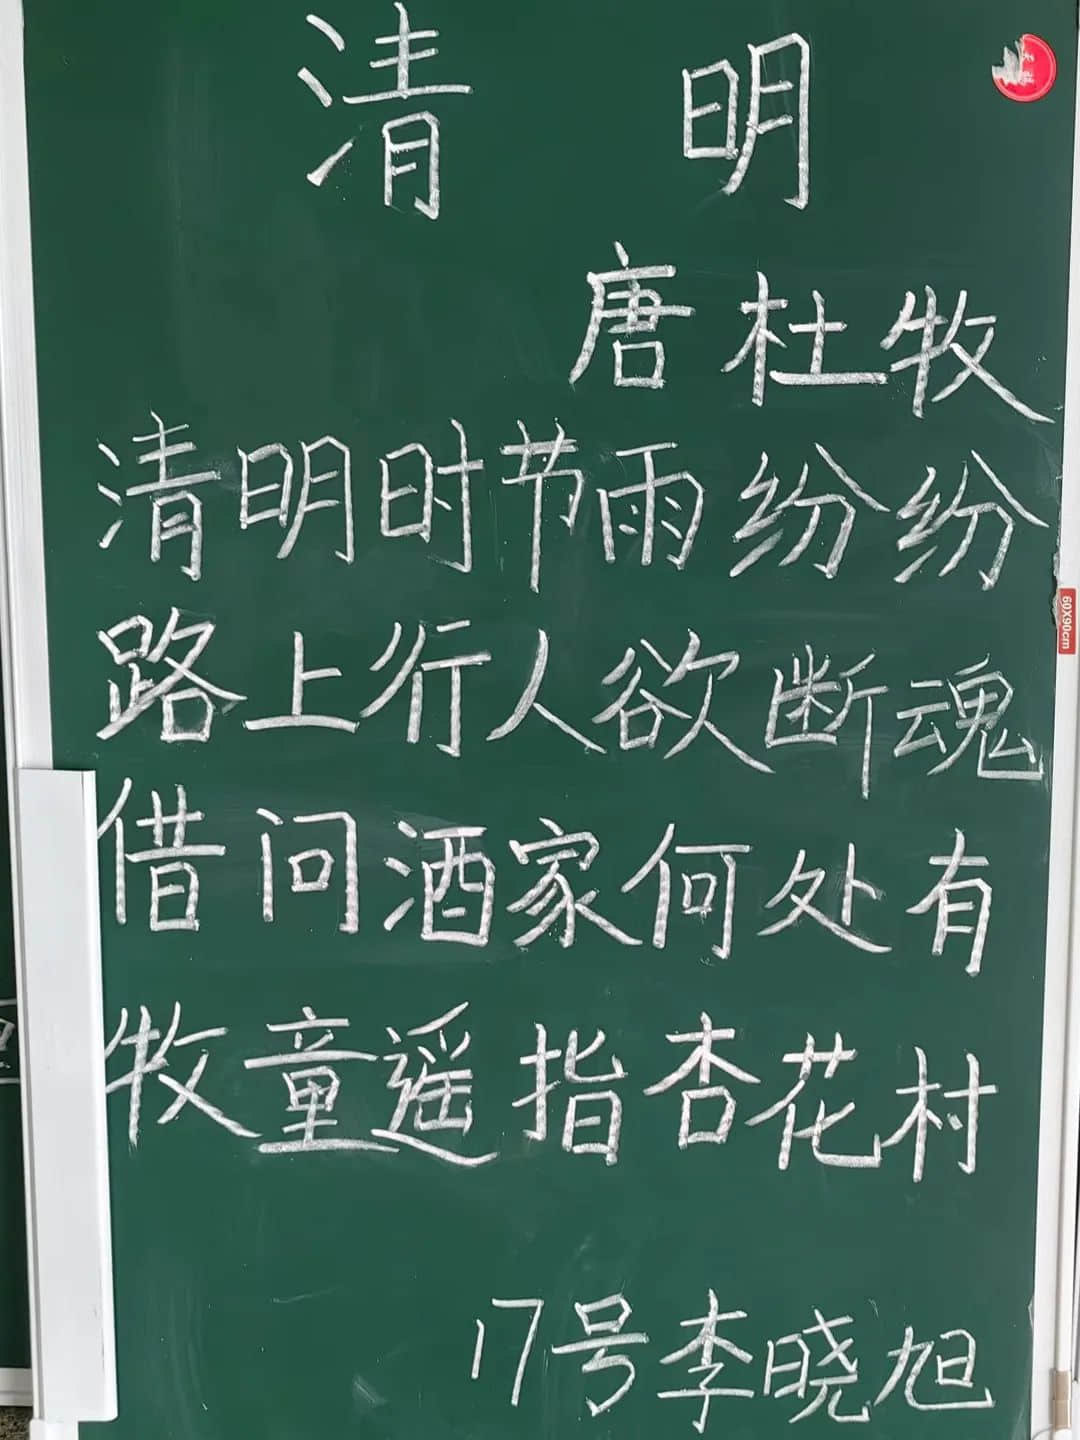 清明
唐 杜牧
清明时节雨纷纷
路上行人欲断魂
借问酒家何处有
牧童遥指杏花村
17号李晓旭
60X90cm